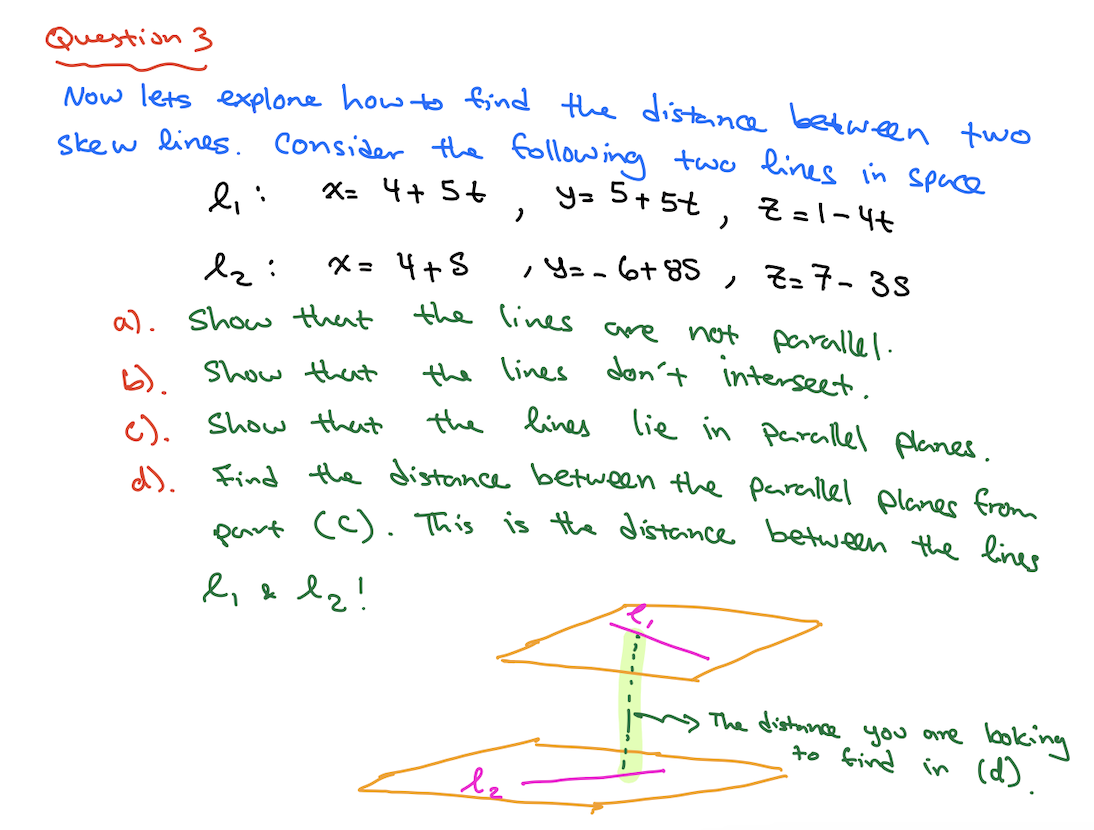 Question 3
Now lets explore how to find the distance between two
skew lines. Consider the following two lines in space
l₁ : x = 4 + 5t , y = 5 + 5t , z = 1 - 4t
l₂ : x = 4 + s , y = -6 + 8s , z = 7 - 3s
a). Show that the lines are not parallel.
b). Show that the lines don't intersect.
c). Show that the lines lie in parallel planes.
d). Find the distance between the parallel planes from
part (c). This is the distance between the lines
l₁ & l₂!
l₁
The distance you are looking
to find in (d).
l₂